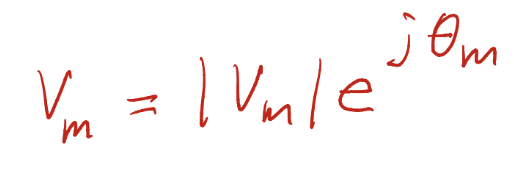 V_m = |V_m| e^{jθ_m}